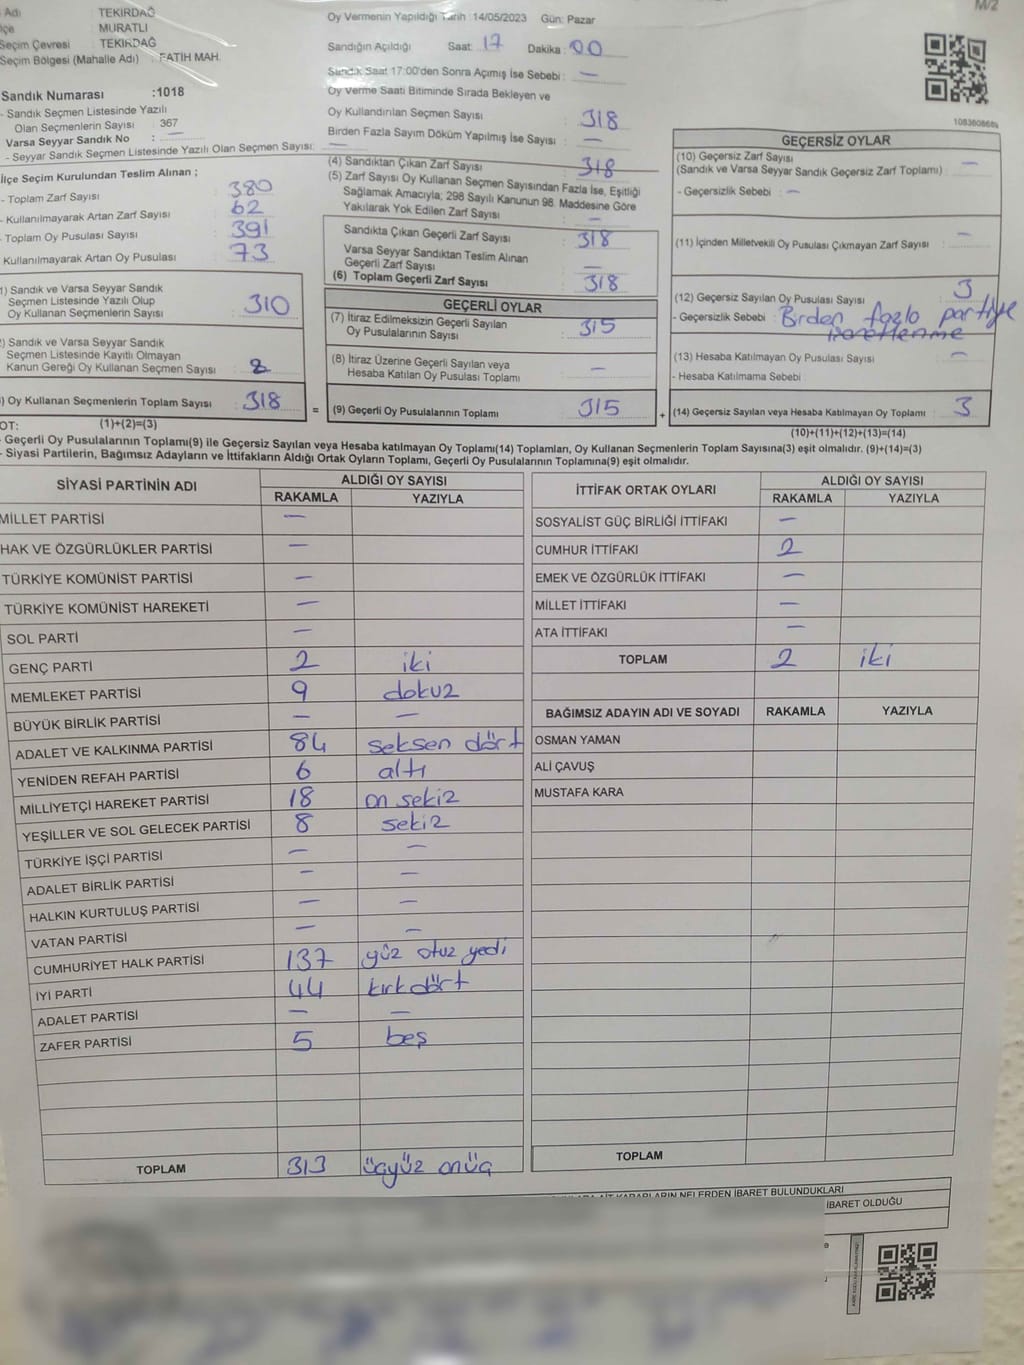 M/2
Adı TEKİRDAĞ
lçe MURATLI
Seçim Çevresi TEKİRDAĞ
Seçim Bölgesi (Mahalle Adı) : FATİH MAH.
Sandık Numarası :1018
- Sandık Seçmen Listesinde Yazılı
Olan Seçmenlerin Sayısı : 367
Varsa Seyyar Sandık No : —
- Seyyar Sandık Seçmen Listesinde Yazılı Olan Seçmen Sayısı: —
İlçe Seçim Kurulundan Teslim Alınan ;
- Toplam Zarf Sayısı : 380
- Kullanılmayarak Artan Zarf Sayısı : 62
- Toplam Oy Pusulası Sayısı : 391
Kullanılmayarak Artan Oy Pusulası : 73
1) Sandık ve Varsa Seyyar Sandık
Seçmen Listesinde Yazılı Olup
Oy Kullanan Seçmenlerin Sayısı : 310
2) Sandık ve Varsa Seyyar Sandık
Seçmen Listesinde Kayıtlı Olmayan
Kanun Gereği Oy Kullanan Seçmen Sayısı : 8
) Oy Kullanan Seçmenlerin Toplam Sayısı : 318
OT: (1)+(2)=(3)
Oy Vermenin Yapıldığı Tarih :14/05/2023 Gün: Pazar
Sandığın Açıldığı Saat: 17 Dakika : 00
Sandık Saat 17:00'den Sonra Açılmış İse Sebebi : —
Oy Verme Saati Bitiminde Sırada Bekleyen ve
Oy Kullandırılan Seçmen Sayısı : 318
Birden Fazla Sayım Döküm Yapılmış İse Sayısı : —
(4) Sandıktan Çıkan Zarf Sayısı : 318
(5) Zarf Sayısı Oy Kullanan Seçmen Sayısından Fazla İse, Eşitliği
Sağlamak Amacıyla; 298 Sayılı Kanunun 98. Maddesine Göre
Yakılarak Yok Edilen Zarf Sayısı : —
Sandıkta Çıkan Geçerli Zarf Sayısı : 318
Varsa Seyyar Sandıktan Teslim Alınan
Geçerli Zarf Sayısı : —
(6) Toplam Geçerli Zarf Sayısı : 318
GEÇERLİ OYLAR
(7) İtiraz Edilmeksizin Geçerli Sayılan
Oy Pusulalarının Sayısı : 315
(8) İtiraz Üzerine Geçerli Sayılan veya
Hesaba Katılan Oy Pusulası Toplamı : —
= (9) Geçerli Oy Pusulalarının Toplamı : 315
GEÇERSİZ OYLAR
(10) Geçersiz Zarf Sayısı
(Sandık ve Varsa Seyyar Sandık Geçersiz Zarf Toplamı) : —
- Geçersizlik Sebebi : —
(11) İçinden Milletvekili Oy Pusulası Çıkmayan Zarf Sayısı : —
(12) Geçersiz Sayılan Oy Pusulası Sayısı : 3
- Geçersizlik Sebebi : Birden fazla partiye
işaretlenme
(13) Hesaba Katılmayan Oy Pusulası Sayısı : —
- Hesaba Katılmama Sebebi :
+ (14) Geçersiz Sayılan veya Hesaba Katılmayan Oy Toplamı : 3
(10)+(11)+(12)+(13)=(14)
- Geçerli Oy Pusulalarının Toplamı(9) ile Geçersiz Sayılan veya Hesaba katılmayan Oy Toplamı(14) Toplamları, Oy Kullanan Seçmenlerin Toplam Sayısına(3) eşit olmalıdır. (9)+(14)=(3)
- Siyasi Partilerin, Bağımsız Adayların ve İttifakların Aldığı Ortak Oyların Toplamı, Geçerli Oy Pusulalarının Toplamına(9) eşit olmalıdır.
SİYASİ PARTİNİN ADI ALDIĞI OY SAYISI
RAKAMLA YAZIYLA
MİLLET PARTİSİ —
HAK VE ÖZGÜRLÜKLER PARTİSİ —
TÜRKİYE KOMÜNİST PARTİSİ —
TÜRKİYE KOMÜNİST HAREKETİ —
SOL PARTİ —
GENÇ PARTİ 2 iki
MEMLEKET PARTİSİ 9 dokuz
BÜYÜK BİRLİK PARTİSİ — —
ADALET VE KALKINMA PARTİSİ 84 seksen dört
YENİDEN REFAH PARTİSİ 6 altı
MİLLİYETÇİ HAREKET PARTİSİ 18 on sekiz
YEŞİLLER VE SOL GELECEK PARTİSİ 8 sekiz
TÜRKİYE İŞÇİ PARTİSİ — —
ADALET BİRLİK PARTİSİ — —
HALKIN KURTULUŞ PARTİSİ — —
VATAN PARTİSİ — —
CUMHURİYET HALK PARTİSİ 137 yüz otuz yedi
İYİ PARTİ 44 kırk dört
ADALET PARTİSİ — —
ZAFER PARTİSİ 5 beş
TOPLAM 313 üçyüz onüç
İTTİFAK ORTAK OYLARI ALDIĞI OY SAYISI
RAKAMLA YAZIYLA
SOSYALİST GÜÇ BİRLİĞİ İTTİFAKI —
CUMHUR İTTİFAKI 2
EMEK VE ÖZGÜRLÜK İTTİFAKI —
MİLLET İTTİFAKI —
ATA İTTİFAKI —
TOPLAM 2 iki
BAĞIMSIZ ADAYIN ADI VE SOYADI RAKAMLA YAZIYLA
OSMAN YAMAN
ALİ ÇAVUŞ
MUSTAFA KARA
TOPLAM
NELERDEN İBARET BULUNDUKLARI
İBARET OLDUĞU